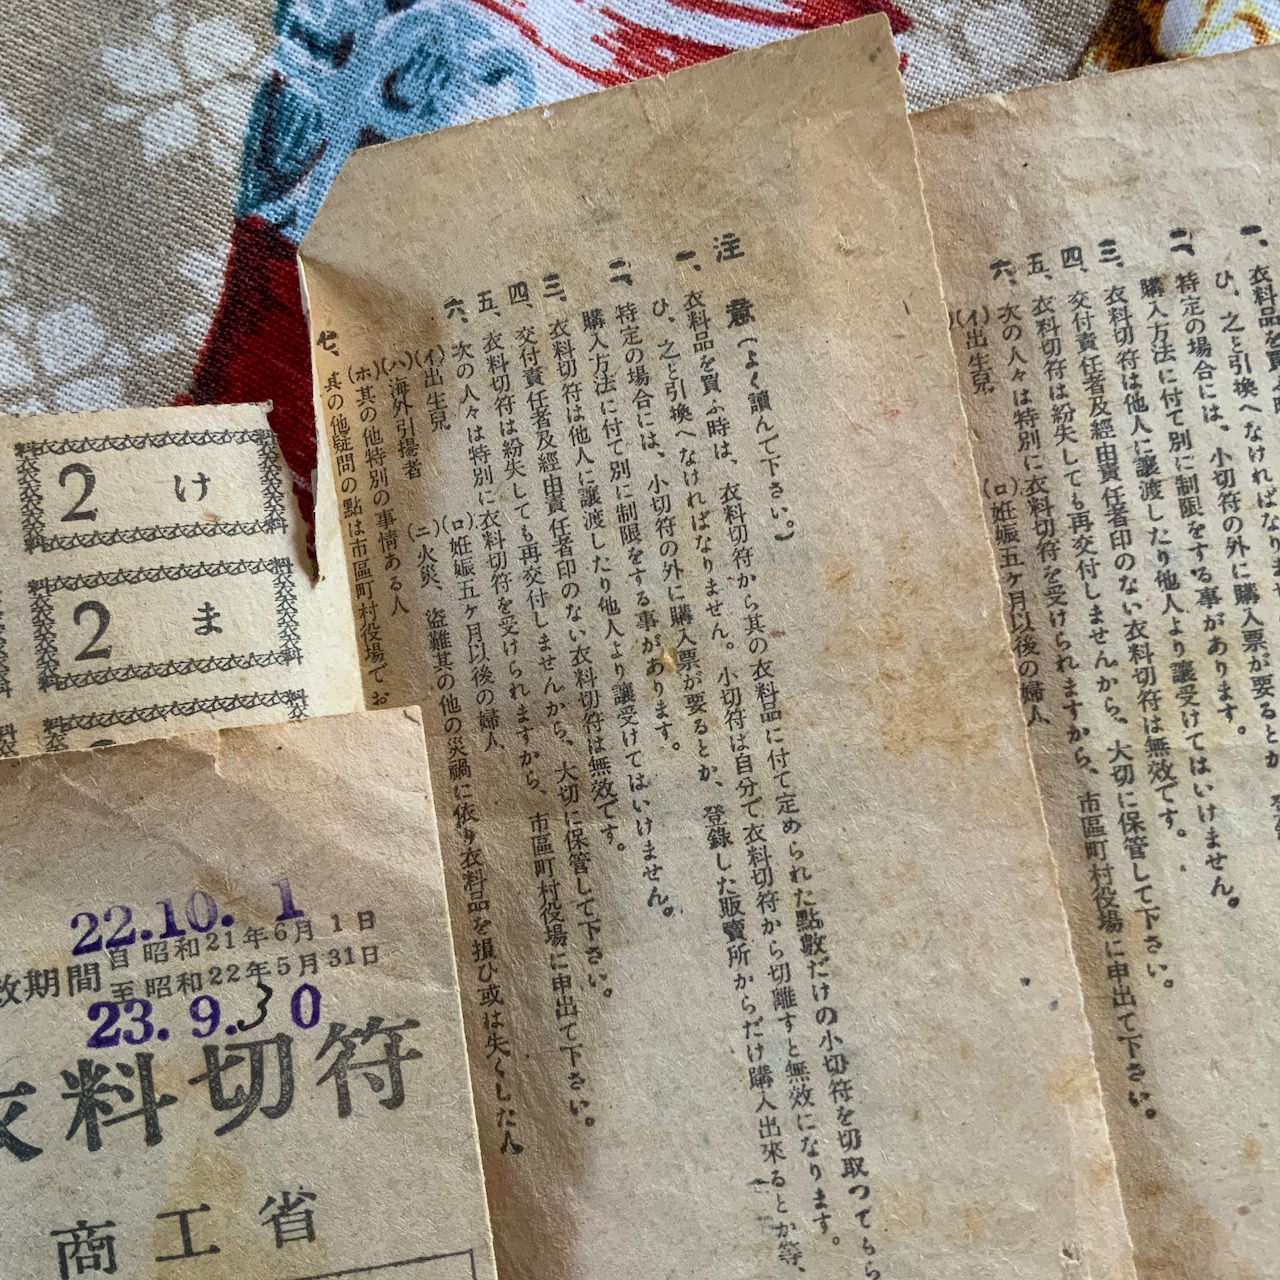 注意(よく讀んで下さい。)
一、衣料品を買ふ時は、衣料切符から其の衣料品に付て定められた點數だけの小切符を切取つてもら
ひ、之と引換へなければなりません。小切符は自分で衣料切符から切離すと無效になります。
二、特定の場合には、小切符の外に購入票が要るとか、登錄した販賣所からだけ購入出來るとか等、
購入方法に付て別に制限をする事があります。
三、衣料切符は他人に讓渡したり他人より讓受けてはいけません。
四、交付責任者及經由責任者印のない衣料切符は無效です。
五、衣料切符は紛失しても再交付しませんから、大切に保管して下さい。
六、次の人々は特別に衣料切符を受けられますから、市區町村役場に申出て下さい。
(イ)出生兒 (ロ)妊娠五ヶ月以後の婦人
(ハ)海外引揚者 (ニ)火災、盜難其の他の災禍に依り衣料品を損ひ或は失くした人
(ホ)其の他特別の事情ある人
七、其の他疑問の點は市區町村役場でお
一、衣料品を買
ひ、之と引換へなければなりませ
二、特定の場合には、小切符の外に購入票が要るとか
購入方法に付て別に制限をする事があります。
三、衣料切符は他人に讓渡したり他人より讓受けてはいけません。
四、交付責任者及經由責任者印のない衣料切符は無效です。
五、衣料切符は紛失しても再交付しませんから、大切に保管して下さい。
六、次の人々は特別に衣料切符を受けられますから、市區町村役場に申出て下さい。
(イ)出生兒 (ロ)妊娠五ヶ月以後の婦人
2 け
2 ま
22.10. 1
效期間 自昭和21年6月1日
至昭和22年5月31日
23. 9.30
衣料切符
商工省